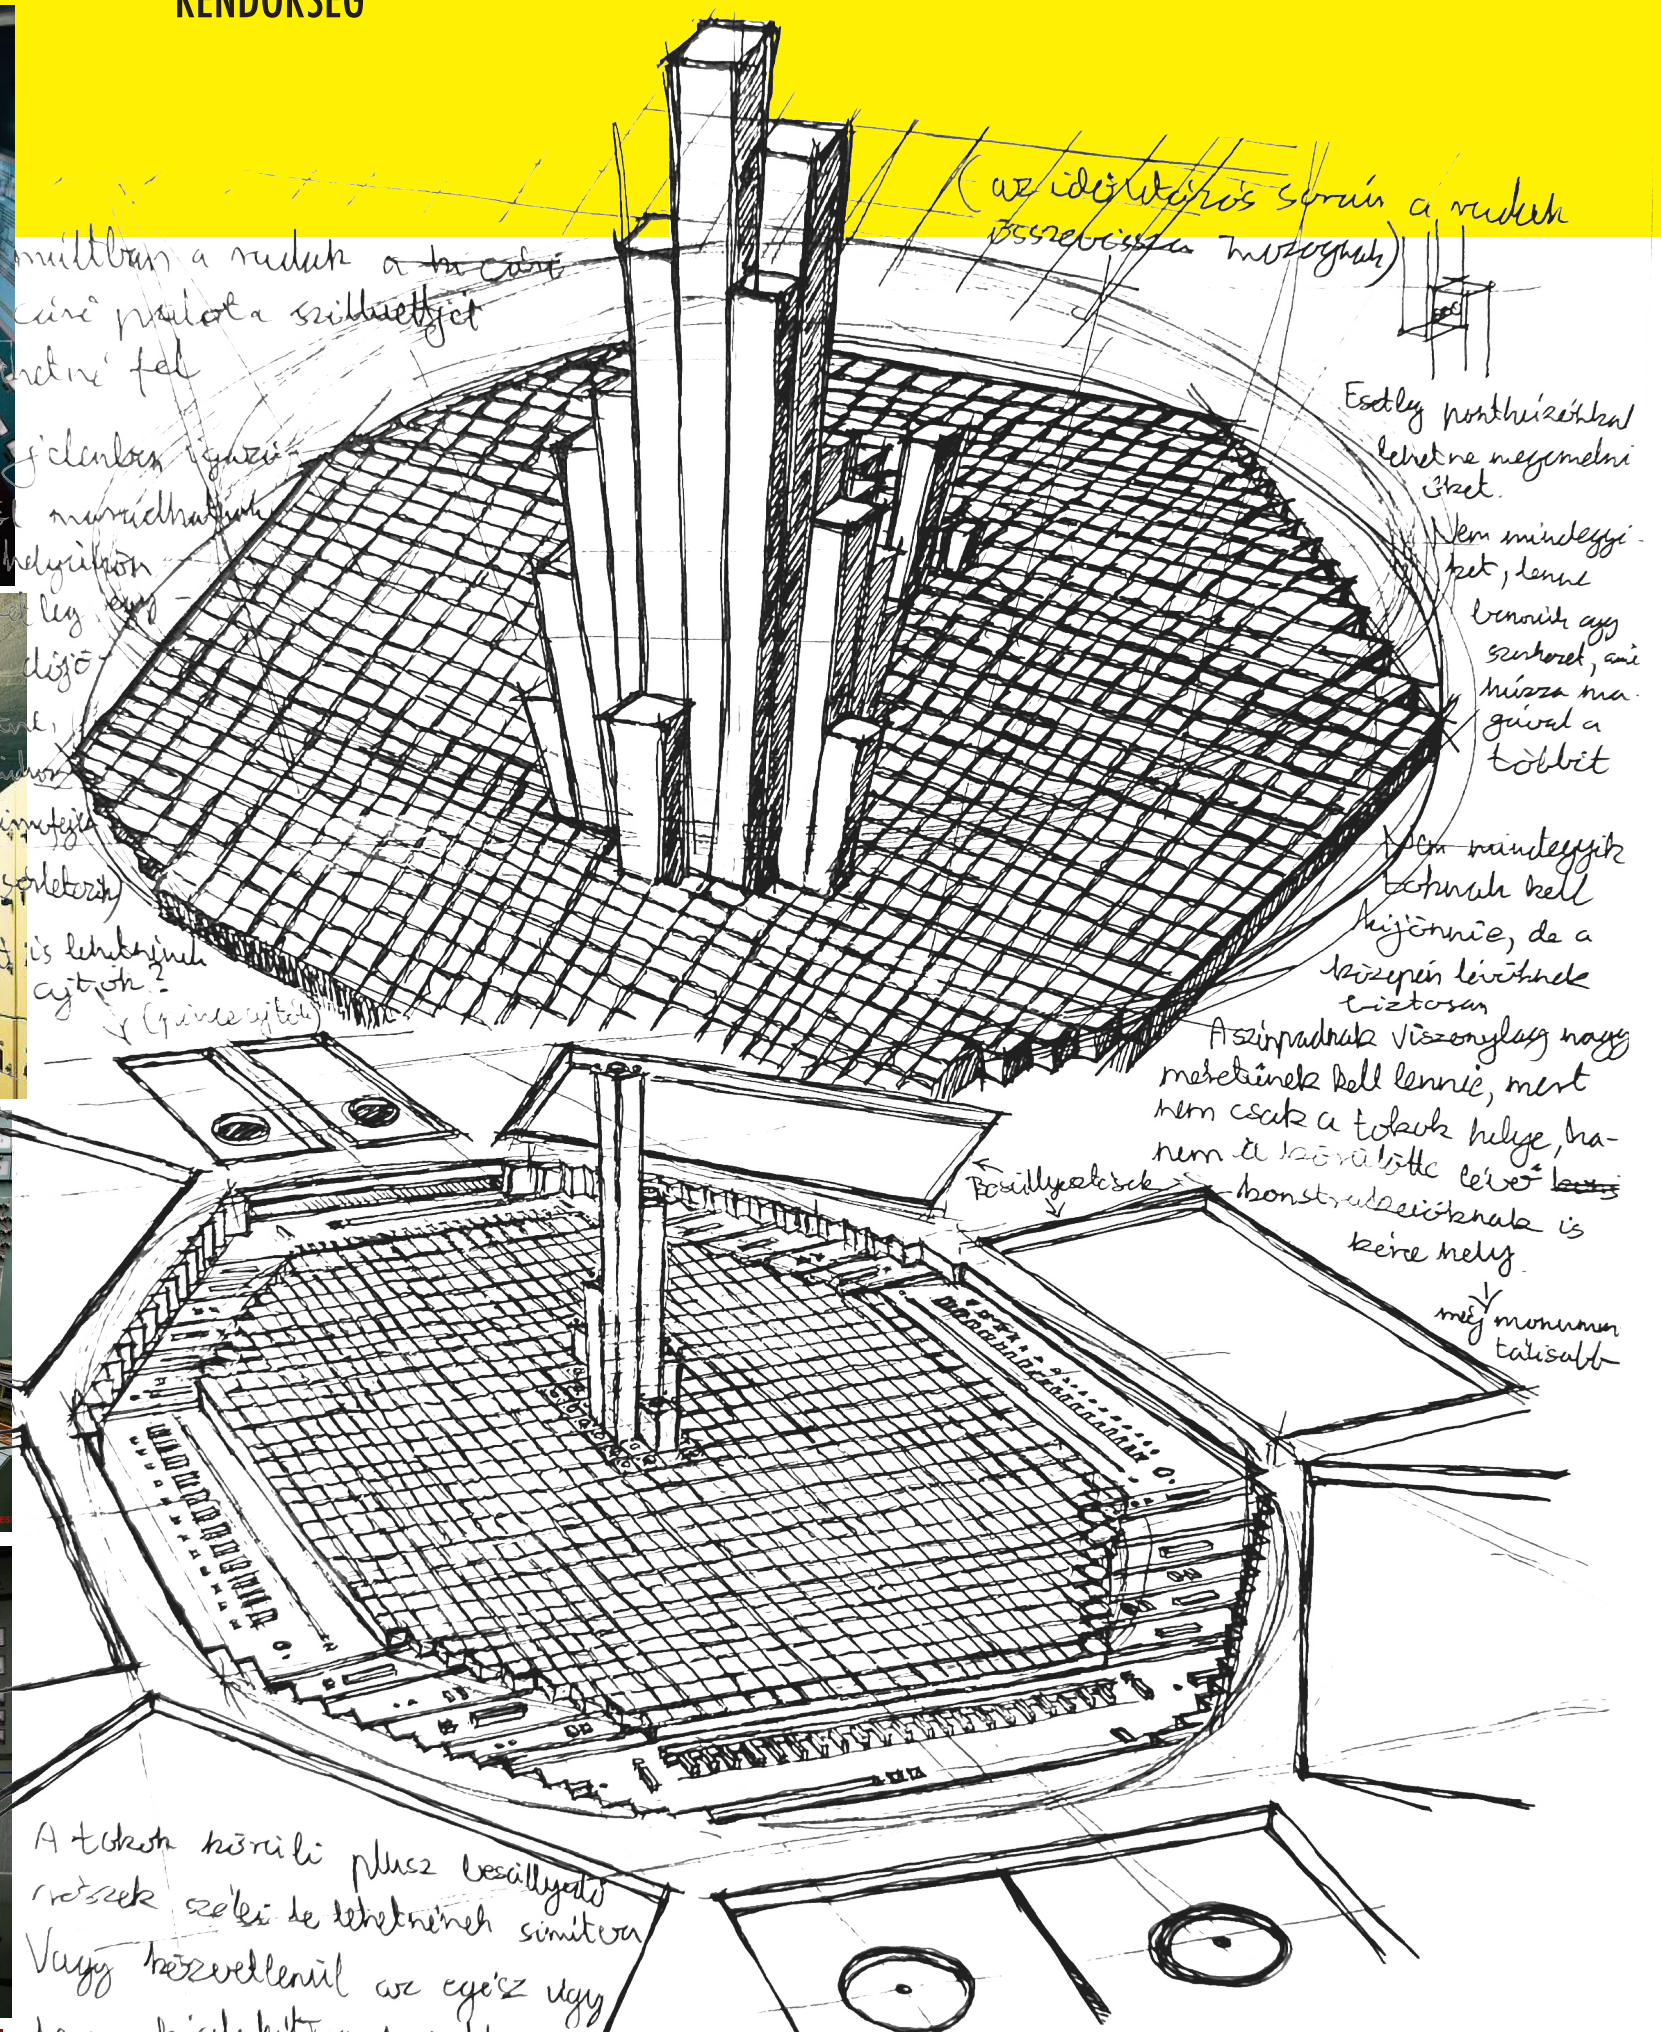 RENDŐRSÉG
(az időutazás során a rudak
összevissza mozognak)
múltban a rudak a
cári palota sziluettjét
fel
jelenben igazá-
maradhatnak
helyükön
egy-
is lehetnének
ajtók?
(pinceajtók)
Esetleg ponthúzókkal
lehetne megemelni
őket.
Nem mindegyi-
ket, lenne
bennük egy
szerkezet, ami
húzza ma-
gával a
többit
Nem mindegyik
toknak kell
kijönnie, de a
közepén lévőknek
biztosan
A színpadnak viszonylag nagy
méretűnek kell lennie, mert
nem csak a tokok helye, ha-
nem a körülötte lévő
konstrukcióknak is
kéne hely
még monumen
tálisabb
Besüllyesztések
A tokok körüli plusz besüllyedő
részek szélei le lehetnének simítva
Vagy közvetlenül az egész úgy